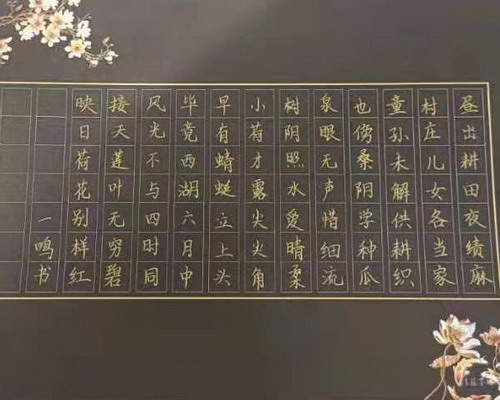 昼出耕田夜绩麻
村庄儿女各当家
童孙未解供耕织
也傍桑阴学种瓜
泉眼无声惜细流
树阴照水爱晴柔
小荷才露尖尖角
早有蜻蜓立上头
毕竟西湖六月中
风光不与四时同
接天莲叶无穷碧
映日荷花别样红
一鸣书